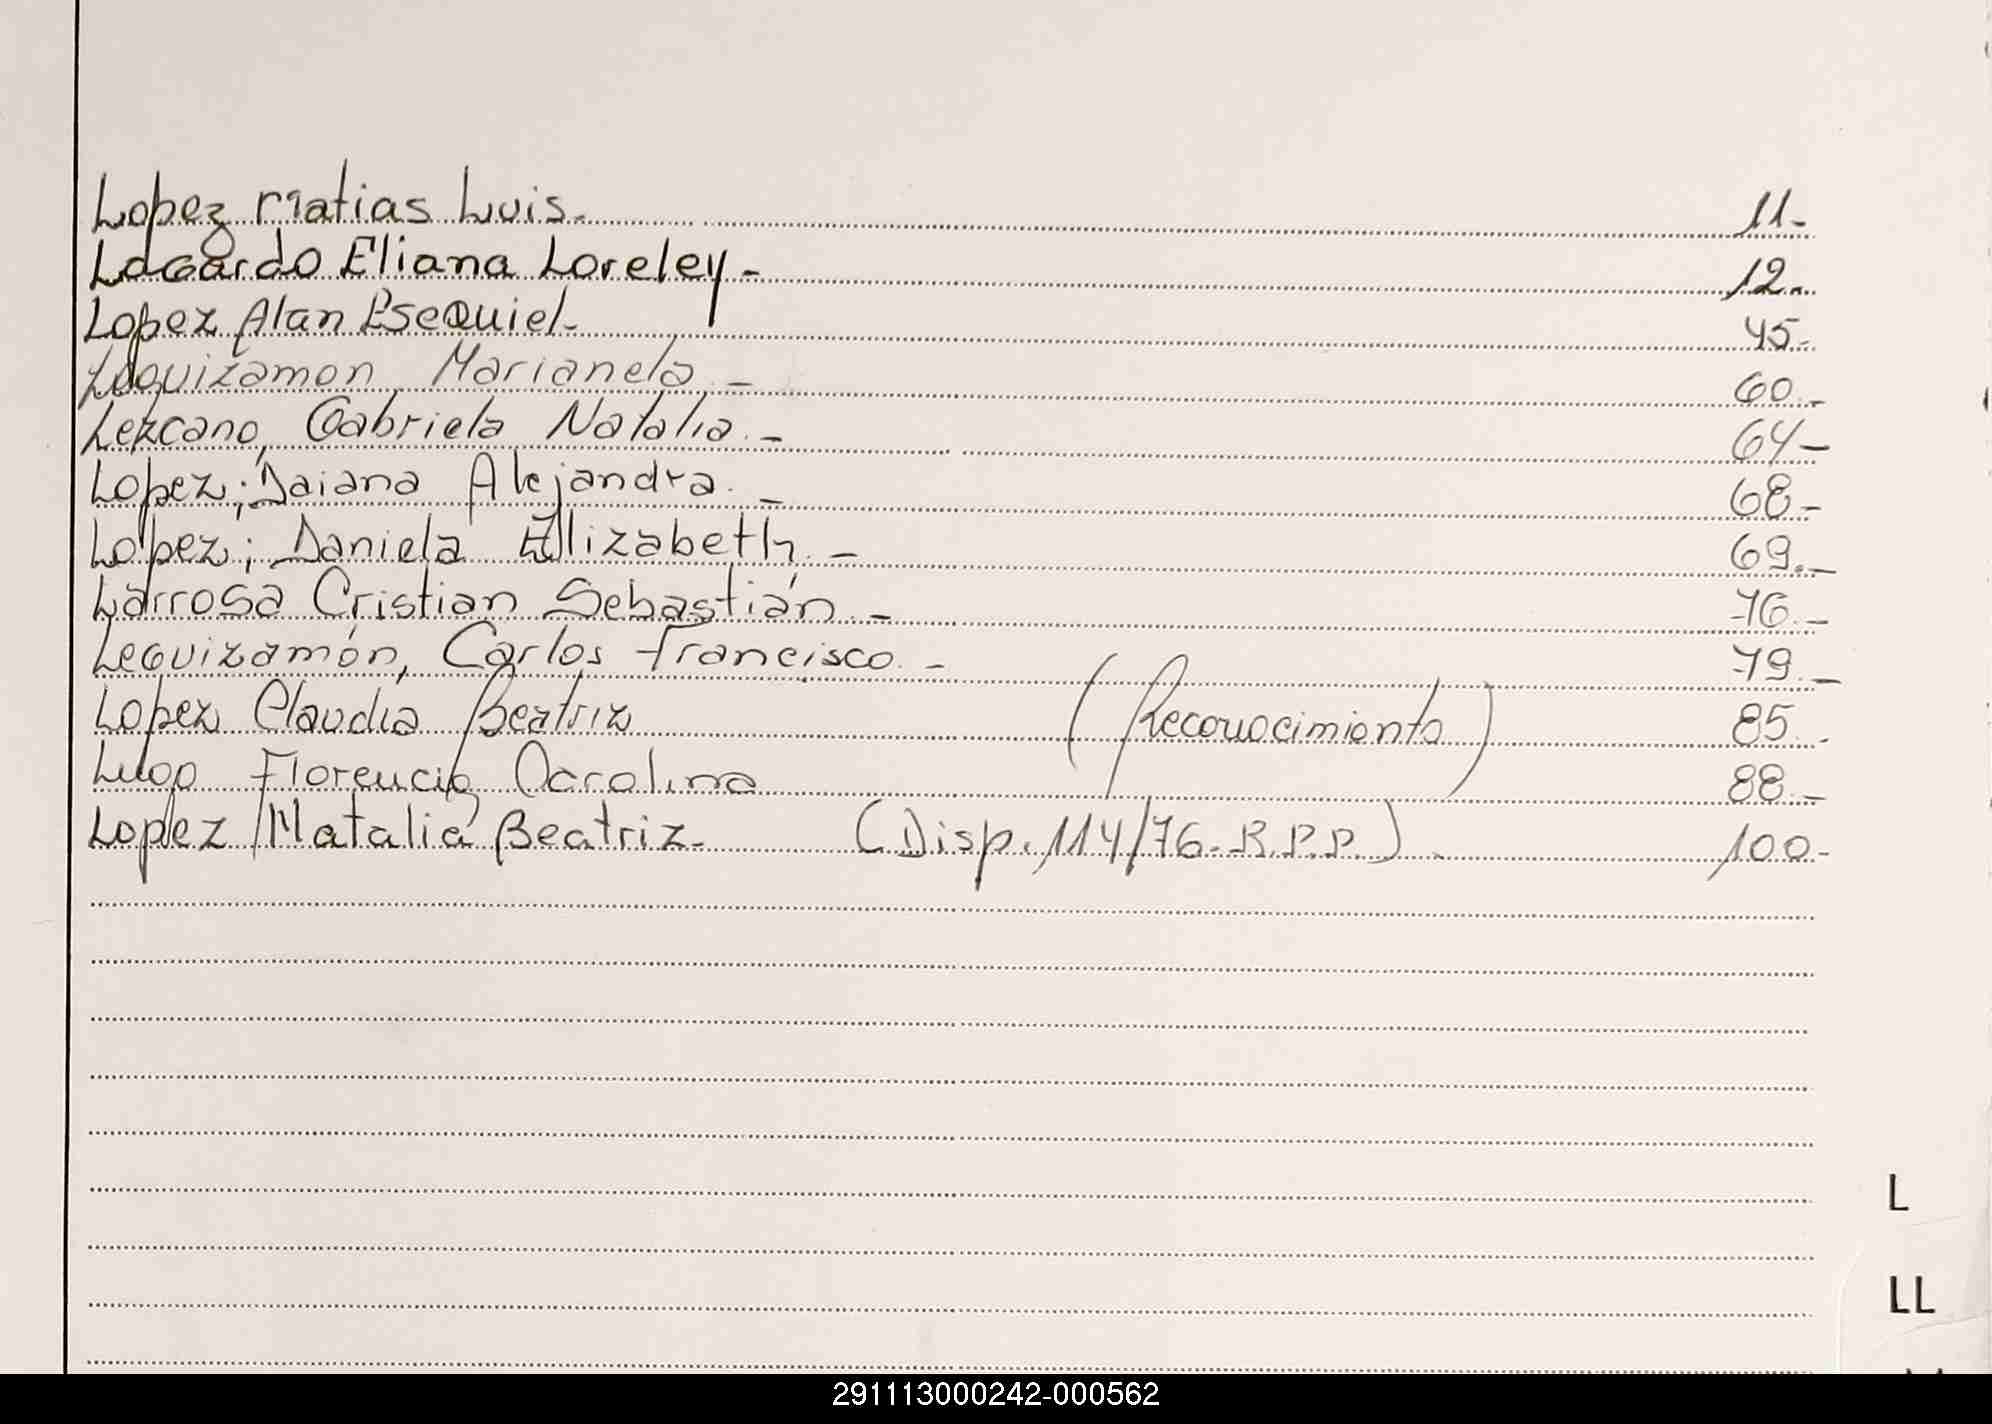 Lopez Matias Luis.- 11-
Lagardo Eliana Loreley- 12.-
Lopez Alan Esequiel- 45.-
Leguizamon Marianela - 60.-
Lezcano, Gabriela Natalia.- 64-
Lopez; Daiana Alejandra. - 68-
Lopez; Daniela Elizabeth. - 69.-
Larrosa Cristian Sebastián.- 76.-
Leguizamón, Carlos Francisco. - 79.-
Lopez Claudia Beatriz (Reconocimiento) 85.-
Lugo Florencia Carolina 88.-
Lopez Natalia Beatriz. (Disp. 114/76. R.P.P.). 100.-
L
LL
291113000242-000562